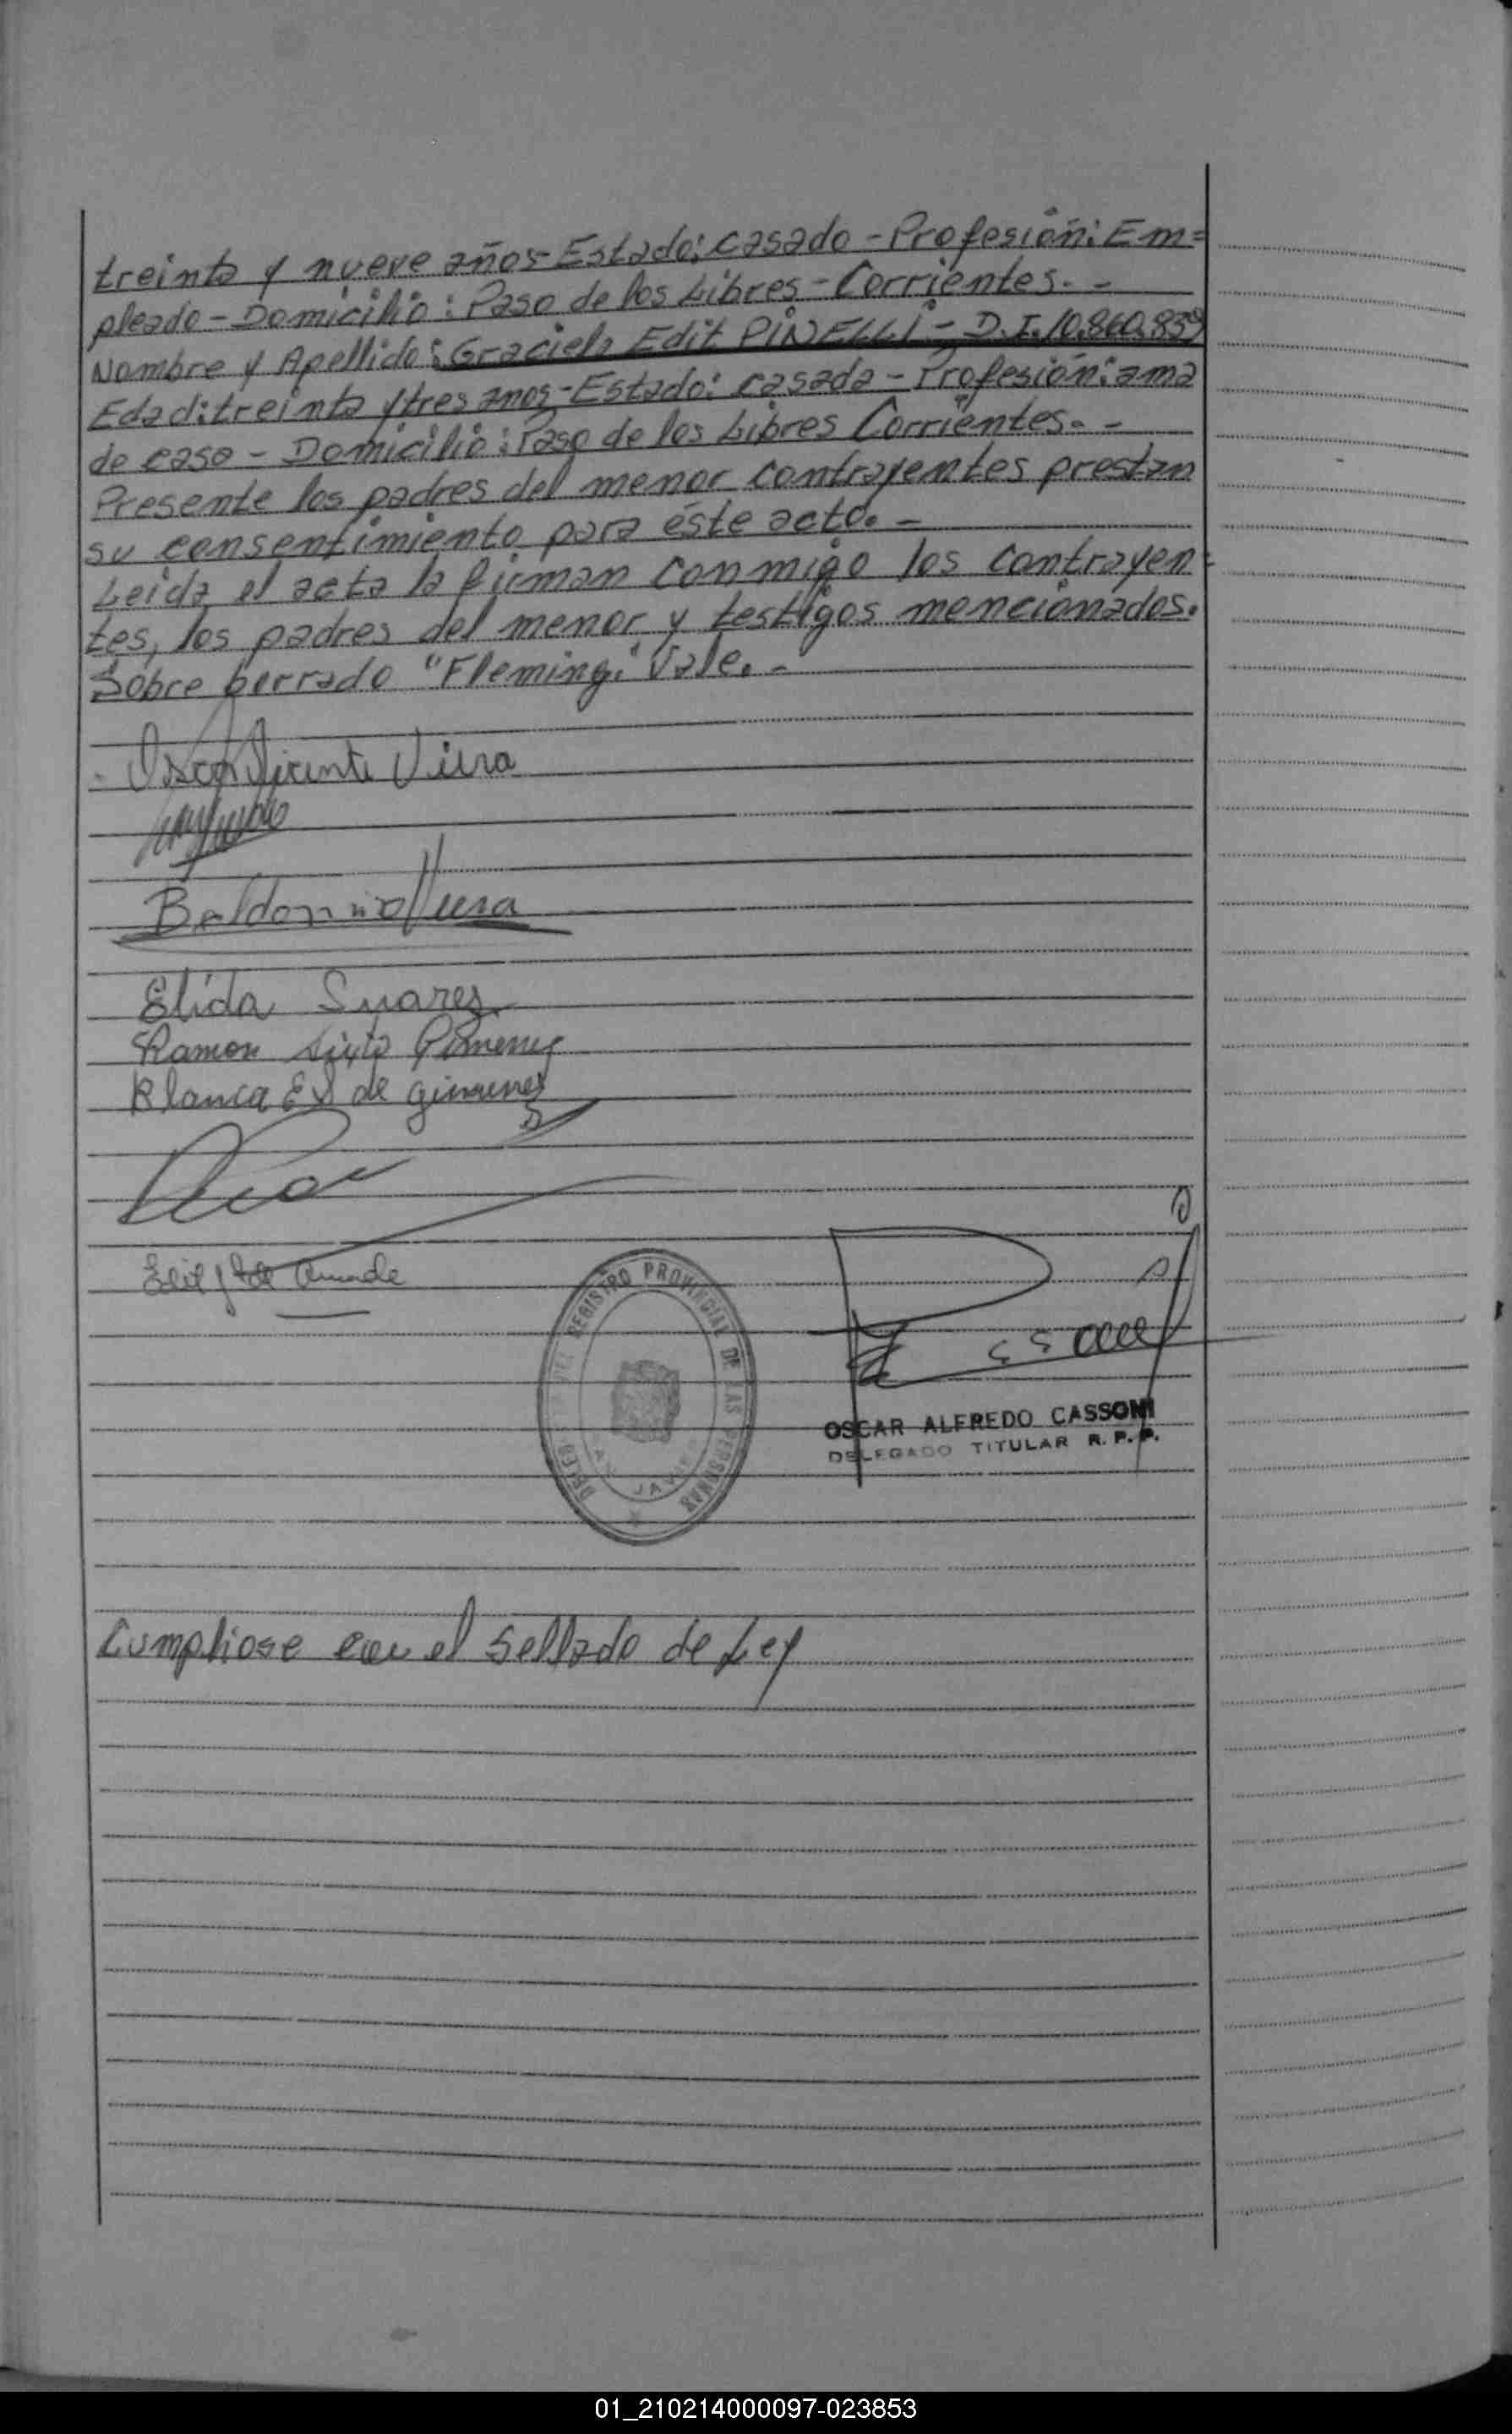 treinta y nueve años-Estado: casado - Profesión: Em=
pleado - Domicilio: Paso de los Libres - Corrientes. -
Nombre y Apellido: Graciela Edit PINELLI - D.I. 10.860.839
Edad: treinta y tres anos - Estado: casada - Profesión: ama
de casa - Domicilio: Paso de los Libres Corrientes. -
Presente los padres del menor contrayentes prestan
su consentimiento para éste acto. -
Leida el acta la firman conmigo los contrayen=
tes, los padres del menor y testigos mencionados.
Sobre borrado "Fleming" Vale. -
Oscar Vicente Viera
Baldomiro Viera
Elida Suarez
Ramon Sixto Gimenez
Blanca E S de gimenez
REGISTRO PROVINCIAL DE LAS PERSONAS
OSCAR ALFREDO CASSONI
DELEGADO TITULAR R. P. P.
Cumpliose con el Sellado de Ley
01_210214000097-023853